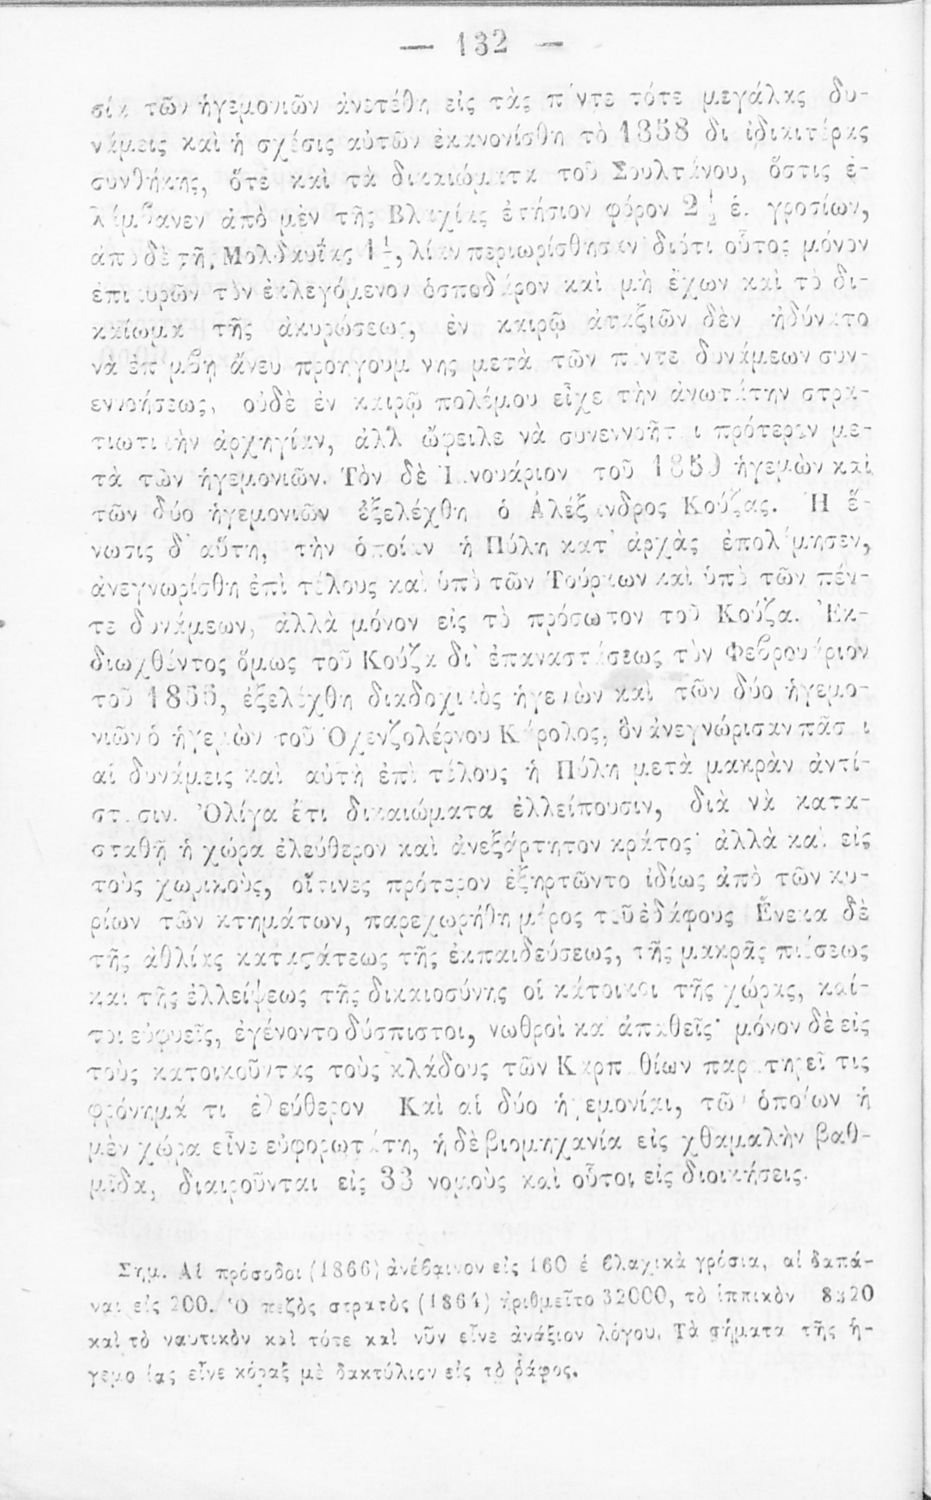 — 132 —
σία τῶν ἡγεμονιῶν ἀνετέθη εἰς τὰς πέντε τότε μεγάλας δυ-
νάμεις καὶ ἡ σχέσις αὐτῶν ἐκανονίσθη τὸ 1858 δι ἰδιαιτέρας
συνθήκης, ὅτε καὶ τὰ δικαιώματα τοῦ Σουλτάνου, ὅστις ἐ-
λάμβανεν ἀπὸ μὲν τῆς Βλαχίας ἐτήσιον φόρον 2 ½ ἑ. γροσίων,
ἀπὸ δὲ τῆς Μολδαυΐας 1 ½, λίαν περιωρίσθησαν διότι οὗτος μόνον
ἐπικυρῶν τὸν ἐκλεγόμενον ὁσποδάρον καὶ μὴ ἔχων καὶ τὸ δι-
καίωμα τῆς ἀκυρώσεως, ἐν καιρῷ ἀταξιῶν δὲν ἠδύνατο
νὰ ἐπέμβη ἄνευ προηγουμένης μετὰ τῶν πέντε δυνάμεων συν-
εννοήσεως, οὐδὲ ἐν καιρῷ πολέμου εἶχε τὴν ἀνωτάτην στρα-
τιωτικὴν ἀρχηγίαν, ἀλλ ὤφειλε νὰ συνεννοῆται πρότερον με-
τὰ τῶν ἡγεμονιῶν. Τὸν δὲ Ἰανουάριον τοῦ 1859 ἡγεμὼν καὶ
τῶν δύο ἡγεμονιῶν ἐξελέχθη ὁ Ἀλέξανδρος Κούζας. Ἡ ἕ-
νωσις δ' αὕτη, τὴν ὁποίαν ἡ Πύλη κατ' ἀρχὰς ἐπολέμησεν,
ἀνεγνωρίσθη ἐπὶ τέλους καὶ ὑπὸ τῶν Τούρκων καὶ ὑπὸ τῶν πέν-
τε δυνάμεων, ἀλλὰ μόνον εἰς τὸ πρόσωπον τοῦ Κούζα. Ἐκ-
διωχθέντος ὅμως τοῦ Κούζα δι' ἐπαναστάσεως τὸν Φεβρουάριον
τοῦ 1856, ἐξελέχθη διαδοχικὸς ἡγεμὼν καὶ τῶν δύο ἡγεμο-
νιῶν ὁ ἡγεμὼν τοῦ Ὁχενζολέρνου Κάρολος, ὃν ἀνεγνώρισαν πᾶσαι
αἱ δυνάμεις καὶ αὐτὴ ἐπὶ τέλους ἡ Πύλη μετὰ μακρὰν ἀντί-
στασιν. Ὀλίγα ἔτι δικαιώματα ἐλλείπουσιν, διὰ νὰ κατα-
σταθῇ ἡ χώρα ἐλεύθερον καὶ ἀνεξάρτητον κράτος· ἀλλὰ καὶ εἰς
τοὺς χωρικοὺς, οἵτινες πρότερον ἐξηρτῶντο ἰδίως ἀπὸ τῶν κυ-
ρίων τῶν κτημάτων, παρεχωρήθη μέρος τοῦ ἐδάφους Ἕνεκα δὲ
τῆς ἀθλίας καταστάσεως τῆς ἐκπαιδεύσεως, τῆς μακρᾶς πιέσεως
καὶ τῆς ἐλλείψεως τῆς δικαιοσύνης οἱ κάτοικοι τῆς χώρας, καί-
τοι εὐφυεῖς, ἐγένοντο δύσπιστοι, νωθροὶ καὶ ἀπαθεῖς· μόνον δὲ εἰς
τοὺς κατοικοῦντας τοὺς κλάδους τῶν Καρπαθίων παρατηρεῖ τις
φρόνημά τι ἐλεύθερον Καὶ αἱ δύο ἡγεμονίαι, τῶν ὁποίων ἡ
μὲν χώρα εἶνε εὐφορωτάτη, ἡ δὲ βιομηχανία εἰς χθαμαλὴν βαθ-
μῖδα, διαιροῦνται εἰς 33 νομοὺς καὶ οὗτοι εἰς διοικήσεις.
Σημ. Αἱ πρόσοδοι (1866) ἀνέβαινον εἰς 160 ἑ βλαχικὰ γρόσια, αἱ δαπά-
ναι εἰς 200. Ὁ πεζὸς στρατὸς (1864) ἠριθμεῖτο 32000, τὸ ἱππικὸν 8320
καὶ τὸ ναυτικὸν καὶ τότε καὶ νῦν εἶνε ἀνάξιον λόγου. Τὰ σήματα τῆς ἡ-
γεμονίας εἶνε κόραξ μὲ δακτύλιον εἰς τὸ ῥάφος.